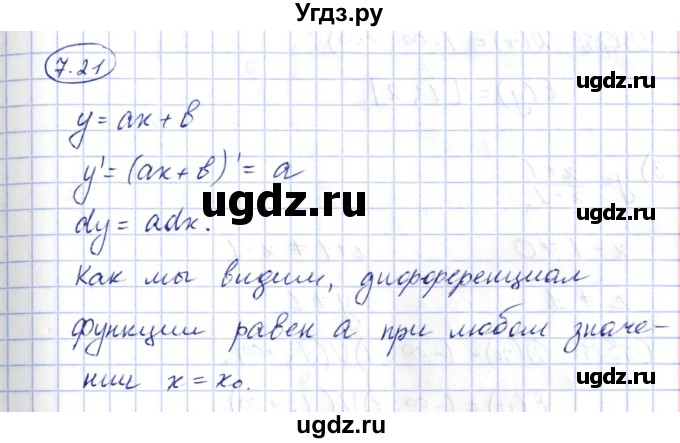 Угдз.ру
7.21
ugdz.ru
y = ax + b
ugdz.ru
y' = (ax + b)' = a
ugdz.ru
dy = adx.
Как мы видим, дифференциал
функции равен a при любом значе-
ugdz.ru
ugdz.ru
нии x = x₀.
ugdz.ru